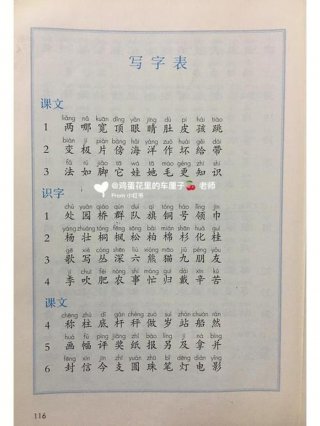 写字表
课文
liǎng nǎ kuān dǐng yǎn jīng dù pí hái tiào
1 两 哪 宽 顶 眼 睛 肚 皮 孩 跳
biàn jí piàn bàng hǎi yáng zuò huài gěi dài
2 变 极 片 傍 海 洋 作 坏 给 带
fǎ rú jiǎo tā wá tā máo gèng zhī shí
3 法 如 脚 它 娃 她 毛 更 知 识
@鸡蛋花里的车厘子🍒老师
From 小红书
识字
chù yuán qiáo qún duì qí tóng hào lǐng jīn
1 处 园 桥 群 队 旗 铜 号 领 巾
yáng zhuàng tóng fēng sōng bǎi mián shān huà guì
2 杨 壮 桐 枫 松 柏 棉 杉 化 桂
gē xiě cóng shēn liù xióng māo jiǔ péng yǒu
3 歌 写 丛 深 六 熊 猫 九 朋 友
jì chuī féi nóng shì máng guī dài xīn kǔ
4 季 吹 肥 农 事 忙 归 戴 辛 苦
课文
chēng zhù dǐ gān chèng zuò suì zhàn chuán rán
4 称 柱 底 杆 秤 做 岁 站 船 然
huà fú píng jiǎng zhǐ bào lìng jí ná bìng
5 画 幅 评 奖 纸 报 另 及 拿 并
fēng xìn jīn zhī yuán zhū bǐ dēng diàn yǐng
6 封 信 今 支 圆 珠 笔 灯 电 影
116